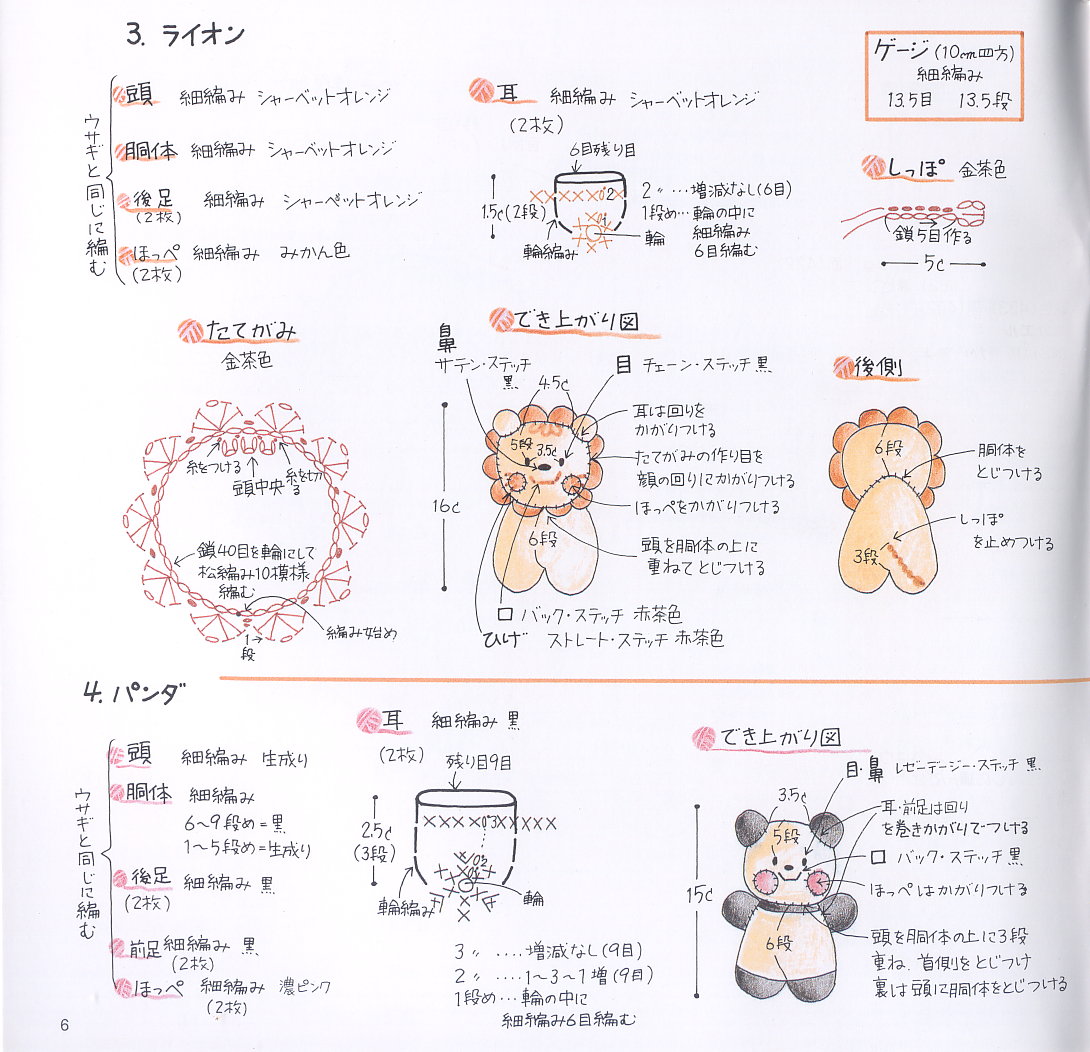 3. ライオン
ウサギと同じに編む
頭 細編み シャーベットオレンジ
胴体 細編み シャーベットオレンジ
後足 細編み シャーベットオレンジ
(2枚)
ほっぺ 細編み みかん色
(2枚)
耳 細編み シャーベットオレンジ
(2枚)
6目残り目
1.5c(2段)
輪編み
輪
2〃…増減なし(6目)
1段め…輪の中に
細編み
6目編む
ゲージ(10cm四方)
細編み
13.5目 13.5段
しっぽ 金茶色
鎖5目作る
5c
たてがみ
金茶色
糸をつける
頭中央
糸を切る
鎖40目を輪にして
松編み10模様
編む
編み始め
1→
段
でき上がり図
鼻
サテン・ステッチ
黒
4.5c
目 チェーン・ステッチ 黒
5段
3.5c
16c
6段
耳は回りを
かがりつける
たてがみの作り目を
顔の回りにかがりつける
ほっぺをかがりつける
頭を胴体の上に
重ねてとじつける
口 バック・ステッチ 赤茶色
ひげ ストレート・ステッチ 赤茶色
後側
6段
胴体を
とじつける
しっぽ
を止めつける
3段
4. パンダ
ウサギと同じに編む
頭 細編み 生成り
胴体 細編み
6〜9段め=黒
1〜5段め=生成り
後足 細編み 黒
(2枚)
前足 細編み 黒
(2枚)
ほっぺ 細編み 濃ピンク
(2枚)
耳 細編み 黒
(2枚)
残り目9目
2.5c
(3段)
輪編み
輪
3〃….増減なし(9目)
2〃….1〜3〜1増(9目)
1段め…輪の中に
細編み6目編む
でき上がり図
目・鼻 レゼーデージー・ステッチ 黒
3.5c
5段
15c
6段
耳・前足は回り
を巻きかがりでつける
口 バック・ステッチ 黒
ほっぺはかがりつける
頭を胴体の上に3段
重ね、首側をとじつけ
裏は頭に胴体をとじつける
6